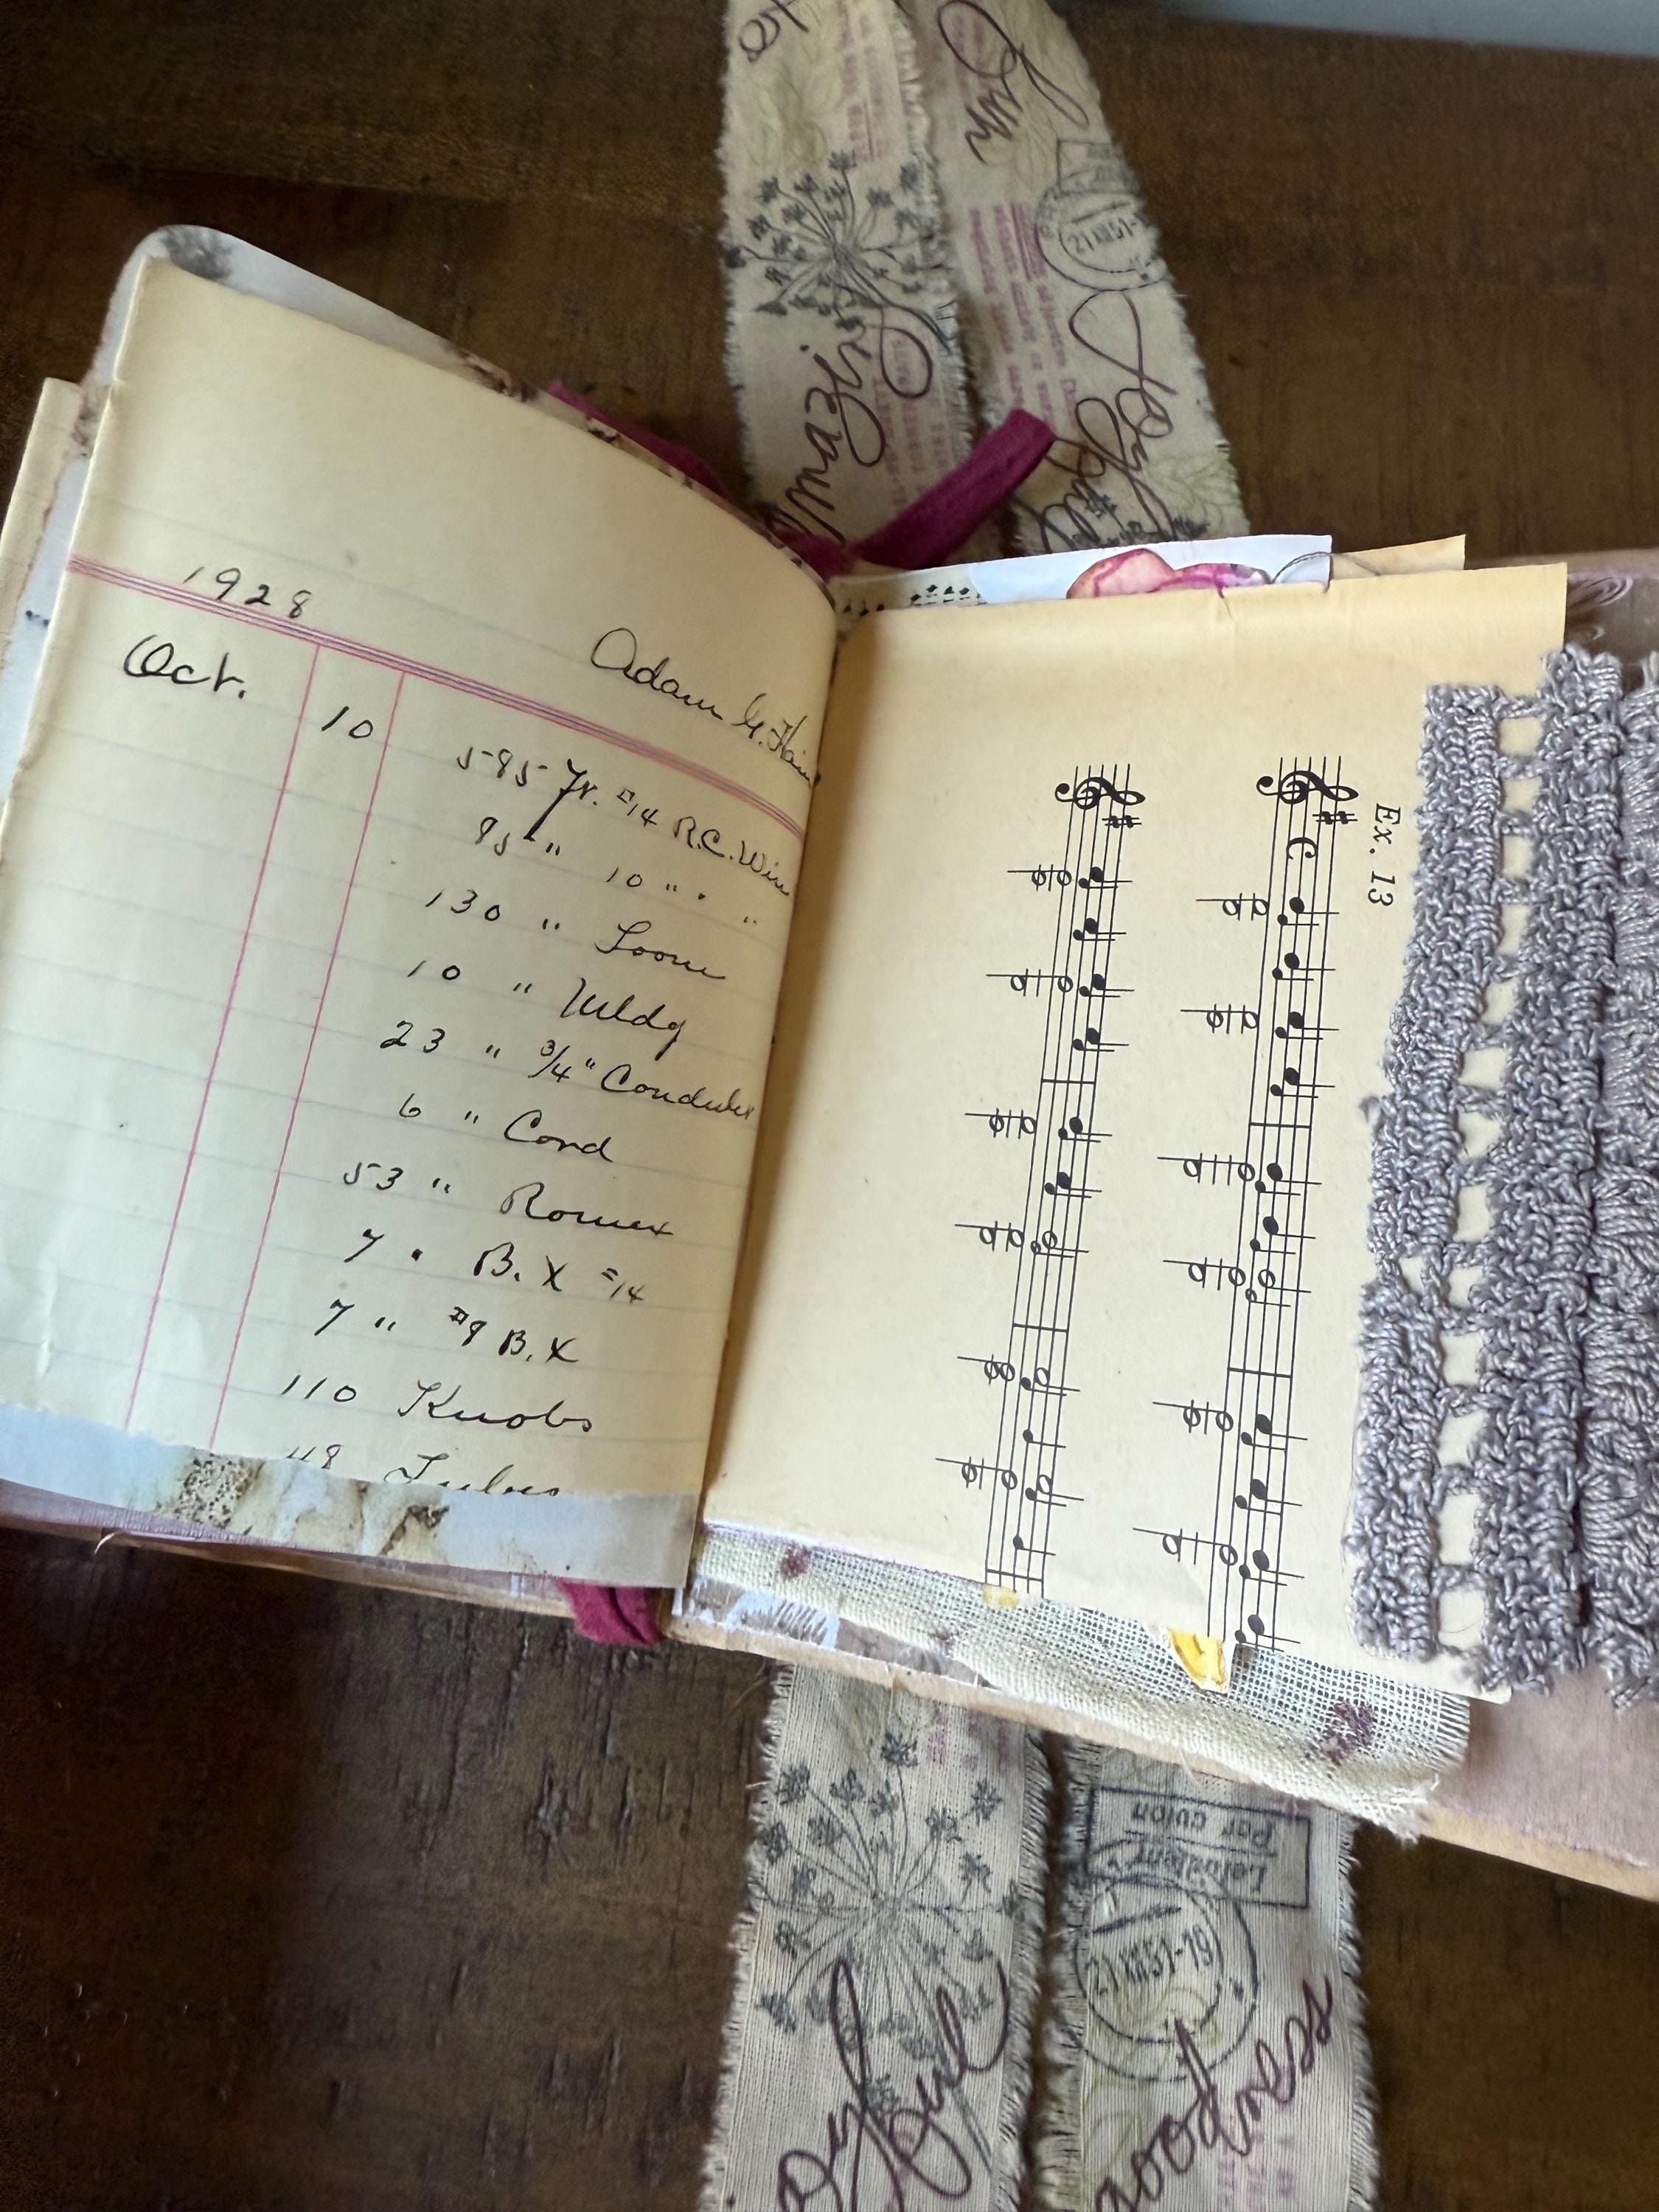 1928
Adam G.
Oct. 10
595 Ft. #14 R.C. Wire
95 " 10 " . "
130 " Loom
10 " Mldg
23 " 3/4" Conduit
6 " Cord
53 " Romex
7 . B.X #14
7 " #9 B.X
110 Knobs
48 Tubes
Ex. 13
Amazing
Joyful
21 XII 51-
Joyful
Par avion
21 XII 51-19
goodness